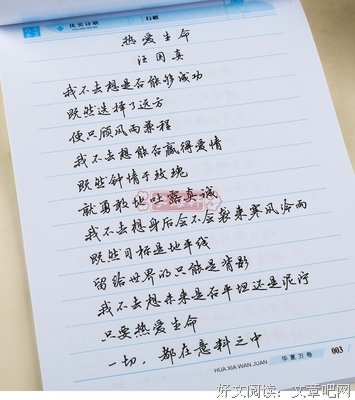 优美诗歌
行楷
热爱生命
汪国真
我不去想是否能够成功
既然选择了远方
便只顾风雨兼程
我不去想能否赢得爱情
既然钟情于玫瑰
就勇敢地吐露真诚
我不去想身后会不会袭来寒风冷雨
既然目标是地平线
留给世界的只能是背影
我不去想未来是否平坦还是泥泞
只要热爱生命
一切，都在意料之中
华夏万卷
003
HUA XIA WAN JUAN
好文阅读：文章吧网